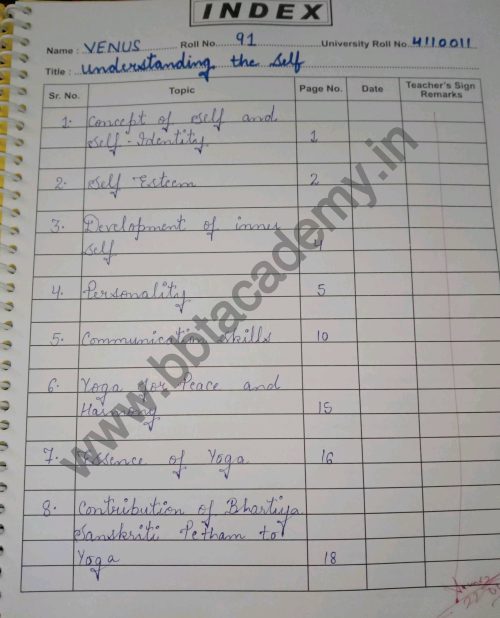 INDEX
Name : VENUS Roll No. 91 University Roll No. 4110011
Title : Understanding the Self
Sr. No. Topic Page No. Date Teacher's Sign Remarks
1. Concept of Self and
Self-Identity 1
2. Self Esteem 2
3. Development of inner
Self 4
4. Personality 5
5. Communication Skills 10
6. Yoga for Peace and
Harmony 15
7. Essence of Yoga 16
8. Contribution of Bhartiya
Sanskriti Petham to
Yoga 18
www.bbtacademy.in